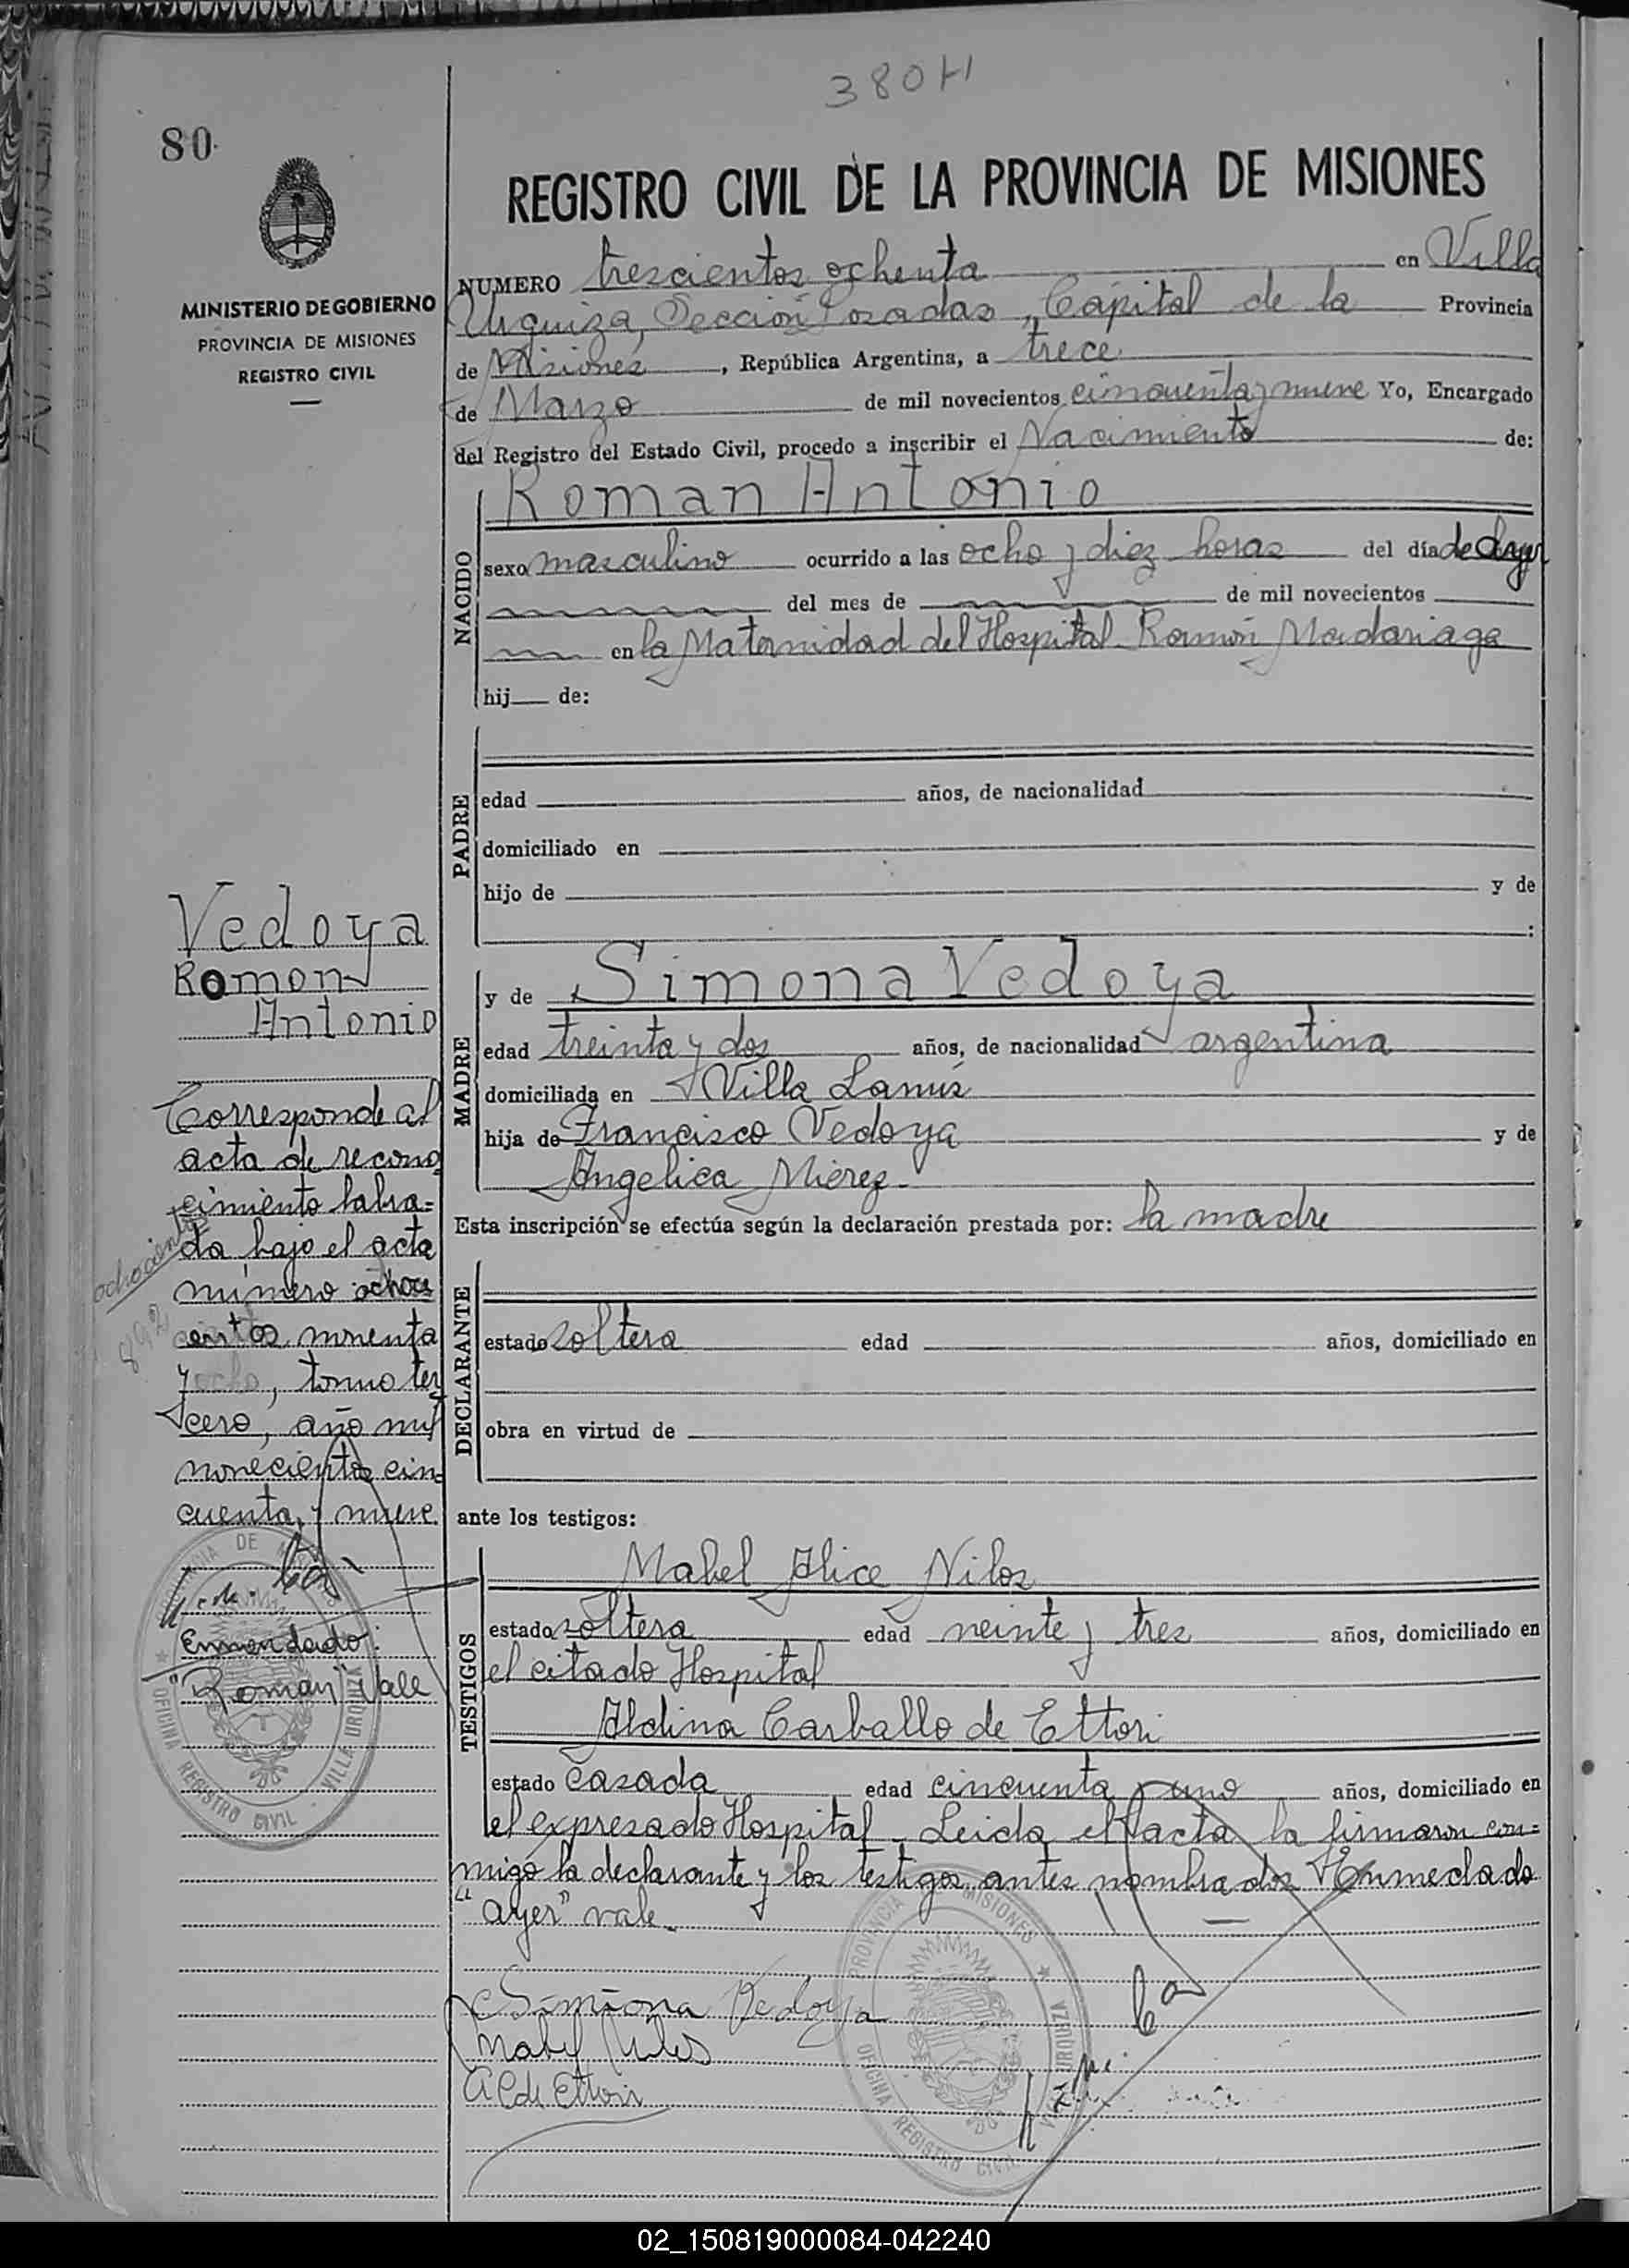 380H
80.
REGISTRO CIVIL DE LA PROVINCIA DE MISIONES
MINISTERIO DE GOBIERNO
PROVINCIA DE MISIONES
REGISTRO CIVIL
NUMERO trescientos ochenta en Villa
Urquiza, Sección Posadas, Capital de la Provincia
de Misiones, República Argentina, a trece
de Marzo de mil novecientos cincuenta y nueve Yo, Encargado
del Registro del Estado Civil, procedo a inscribir el Nacimiento de:
NACIDO
Roman Antonio
sexo masculino ocurrido a las ocho y diez horas del día de Ayer
del mes de de mil novecientos
en la Maternidad del Hospital Ramón Madariaga
hij de:
PADRE
edad años, de nacionalidad
domiciliado en
hijo de y de
:
MADRE
y de Simona Vedoya
edad treinta y dos años, de nacionalidad argentina
domiciliada en Villa Lanús
hija de Francisco Vedoya y de
Angelica Mierez
Esta inscripción se efectúa según la declaración prestada por: la madre
DECLARANTE
estado soltera edad años, domiciliado en
obra en virtud de
ante los testigos:
TESTIGOS
Mabel Alice Nilos
estado soltera edad veinte y tres años, domiciliado en
el citado Hospital
Aldina Carballo de Ettori
estado casada edad cincuenta y uno años, domiciliado en
el expresado Hospital - Leida el acta la firmaron con=
migo la declarante y los testigos antes nombrados Enmedado
"ayer" vale.
Simona Vedoya
Mabel Nilos
A C de Ettori
Vedoya
Roman
Antonio
Corresponde al
acta de recono
cimiento labra=
da bajo el acta
número ochos
cientos noventa
y ocho, tomo ter
cero, año mil
novecientos cin
cuenta y nueve
ochocientos
892
Enmendado:
"Roman" Vale
PROVINCIA DE MISIONES
OFICINA REGISTRO CIVIL - VILLA URQUIZA
PROVINCIA MISIONES
OFICINA REGISTRO CIVIL URQUIZA
02_150819000084-042240